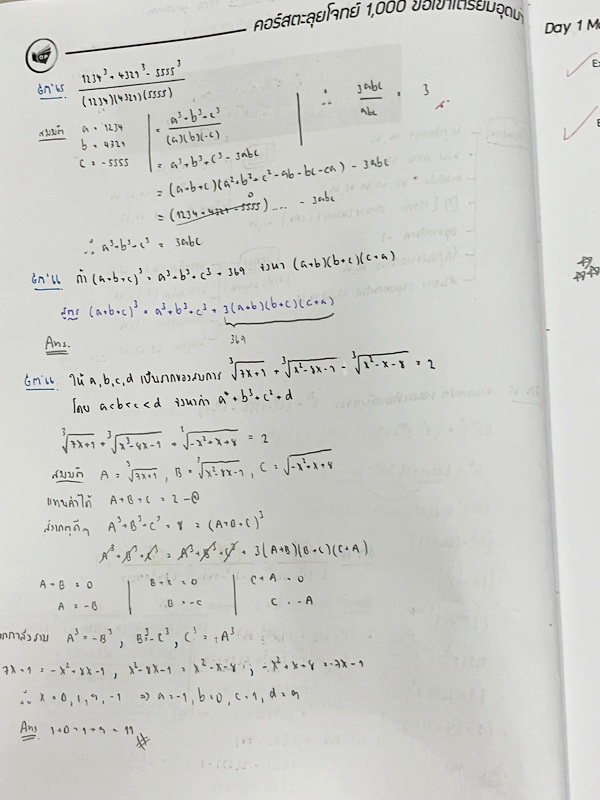 คอร์สตะลุยโจทย์ 1,000 ข้อเข้าเตรียมอุดม
Day 1 M
1234³ + 4321³ - 5555³
(1234)(4321)(5555)
สมมติ a = 1234
b = 4321
c = -5555
a³+b³+c³
(a)(b)(-c)
= a³+b³+c³ - 3abc
= (a+b+c)(a²+b²+c²-ab-bc-ca) - 3abc
= (1234+4321-5555) 0 .... - 3abc
∴ a³+b³+c³ = 3abc
∴ 3abc
abc
= 3
ถ้า (a+b+c)³ = a³+b³+c³ + 369 จงหา (a+b)(b+c)(c+a)
สูตร (a+b+c)³ = a³+b³+c³ + 3(a+b)(b+c)(c+a)
369
Ans.
ให้ a,b,c,d เป็นรากของสมการ ³√7x+1 + ³√x²-8x-1 - ³√x²-x-8 = 2
โดย a<b<c<d จงหาค่า a⁴+b³+c²+d
³√7x+1 + ³√x²-8x-1 + ³√-x²+x+8 = 2
สมมติ A = ³√7x+1 , B = ³√x²-8x-1 , C = √-x²+x+8
แทนค่าได้ A+B+C = 2
A³+B³+C³ = 8 = (A+B+C)³
A³+B³+C³ = A³+B³+C³ + 3(A+B)(B+C)(C+A)
A+B = 0 B+C = 0 C+A = 0
A = -B B = -C C = -A
A³ = -B³ , B³ = -C³ , C³ = -A³
7x+1 = -x²+8x+1 , x²-8x-1 = x²-x-8 ; -x²+x+8 = -7x-1
∴ x = 0, 1, 9, -1 ⇒ a=-1, b=0, c=1, d=9
Ans 1+0+1+9 = 11 #